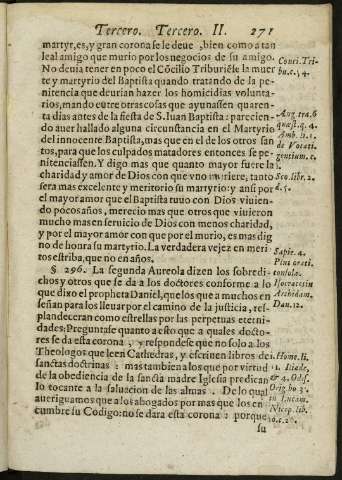 Tercero. Tercero. II. 271
martyr, es, y gran corona se le deue, bien como a tan
leal amigo que murio por los negocios de su amigo.
No deuia tener en poco el Cõcilio Triburiẽse la muer
te y martyrio del Baptista quando tratando de la pe-
nitencia que deurian hazer los homicidias volunta-
rios, mando entre otras cosas que ayunassen quaren-
ta dias antes de la fiesta de S. Iuan Baptista: parecien-
do auer hallado alguna circunstancia en el Martyrio
del innocente Baptista, mas que en el de los otros san
tos, para que los culpados matadores entonces se pe-
nitenciassen. Y digo mas que quanto mayor fuere la
charidad y amor de Dios con que vno muriere; tanto
sera mas excelente y meritorio su martyrio: y ansi por
el mayor amor que el Baptista tuuo con Dios viuien-
do pocos años, merecio mas que otros que viuieron
mucho mas en seruicio de Dios con menos charidad,
y por el mayor amor con que por el murio, es mas dig
no de honra su martyrio. La verdadera vejez en meri
tos estriba, que no en años.
§ 296. La segunda Aureola dizen los sobredi-
chos y otros que se da a los doctores conforme a lo
que dixo el propheta Daniel, que los que a muchos en
señan para los lleuar por el camino de la justicia, res-
plandeceran como estrellas por las perpetuas eterni-
dades: Preguntase quanto a esto que a quales docto-
res se da esta corona; y respondese que no solo a los
Theologos que leen Cathedras, y escriuen libros de
sanctas doctrinas: mas tambien a los que por virtud
de la obediencia de la sancta madre Iglesia predican
lo tocante a la saluacion de las almas. De lo qual
aueriguamos que a los abogados por mas que los en
cumbre su Codigo: no se dara esta corona: porque
su
Conci. Tri-
bu. c. 54.
Aug. tra. 6
quæst. q. 4.
Amb. li. 1.
de Vocati.
gentium. c.
Sco. libr. 2.
d. 5.
Sapie. 4.
Plui orati.
consola.
Isocrates in
Archidam.
Dan. 12.
Home. li.
1. Iliade.
& 4. Odis.
Orig. ho. 3.
in Lucam.
Nicep. lib.
10. c. 20.